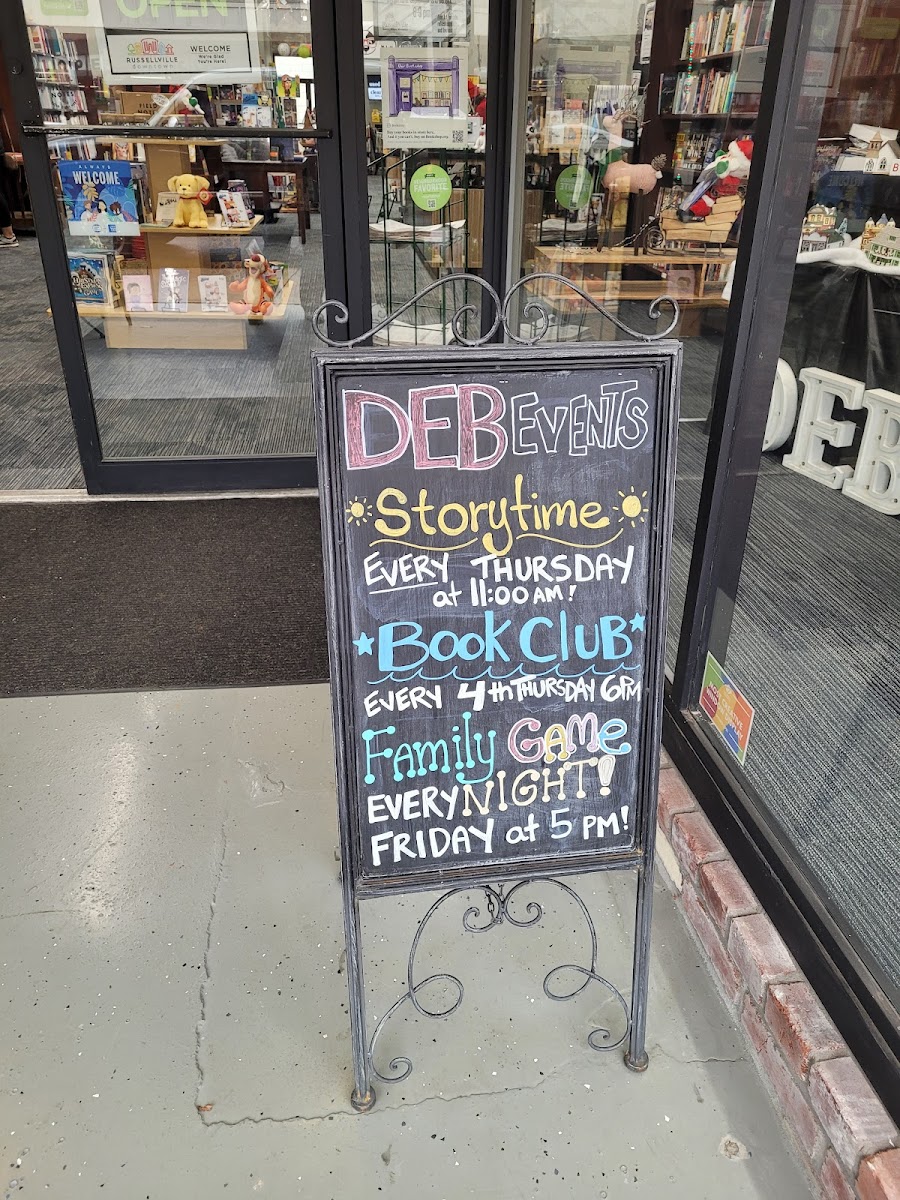 OPEN
RUSSELLVILLE
DOWNTOWN
WELCOME
We're Glad
You're Here!
ALWAYS
WELCOME
FAVORITE
DEB EVENTS
Storytime
EVERY THURSDAY
at 11:00 AM!
Book Club
EVERY 4th THURSDAY 6PM
Family GAME
EVERY NIGHT!
FRIDAY at 5 PM!
DEB